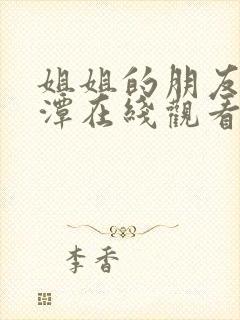 姐姐的朋友
潭在綫觀看
李香